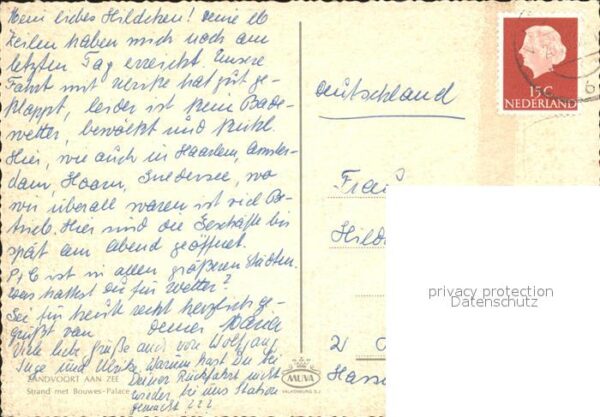 Mein liebes Hildchen! Deine lb
Zeilen haben mich noch am
letzten Tag erreicht. Unsere
Fahrt mit Ulrike hat gut ge-
klappt, leider ist kein Bade-
wetter, bewölkt und kühl.
Hier, wie auch in Haarlem, Amster-
dam, Hoorn, Zuidersee, wo
wir überall waren ist viel Be-
trieb. Hier sind die Geschäfte bis
spät am Abend geöffnet.
P+C ist in allen größeren Städten.
Was hattest du für Wetter?
Sei für heute recht herzlich ge-
grüßt von Deiner Maria
Viele liebe Grüße auch von Wolfgang,
Inge und Ulrike. Warum hast Du bei
Deiner Rückfahrt nicht
wieder bei uns Station
gemacht ???
ZANDVOORT AAN ZEE
Strand met Bouwes-Palace
MUVA
VALKENBURG
15 C
NEDERLAND
6
Deutschland
Frau
Hild
privacy protection
Datenschutz
2 O
Hass